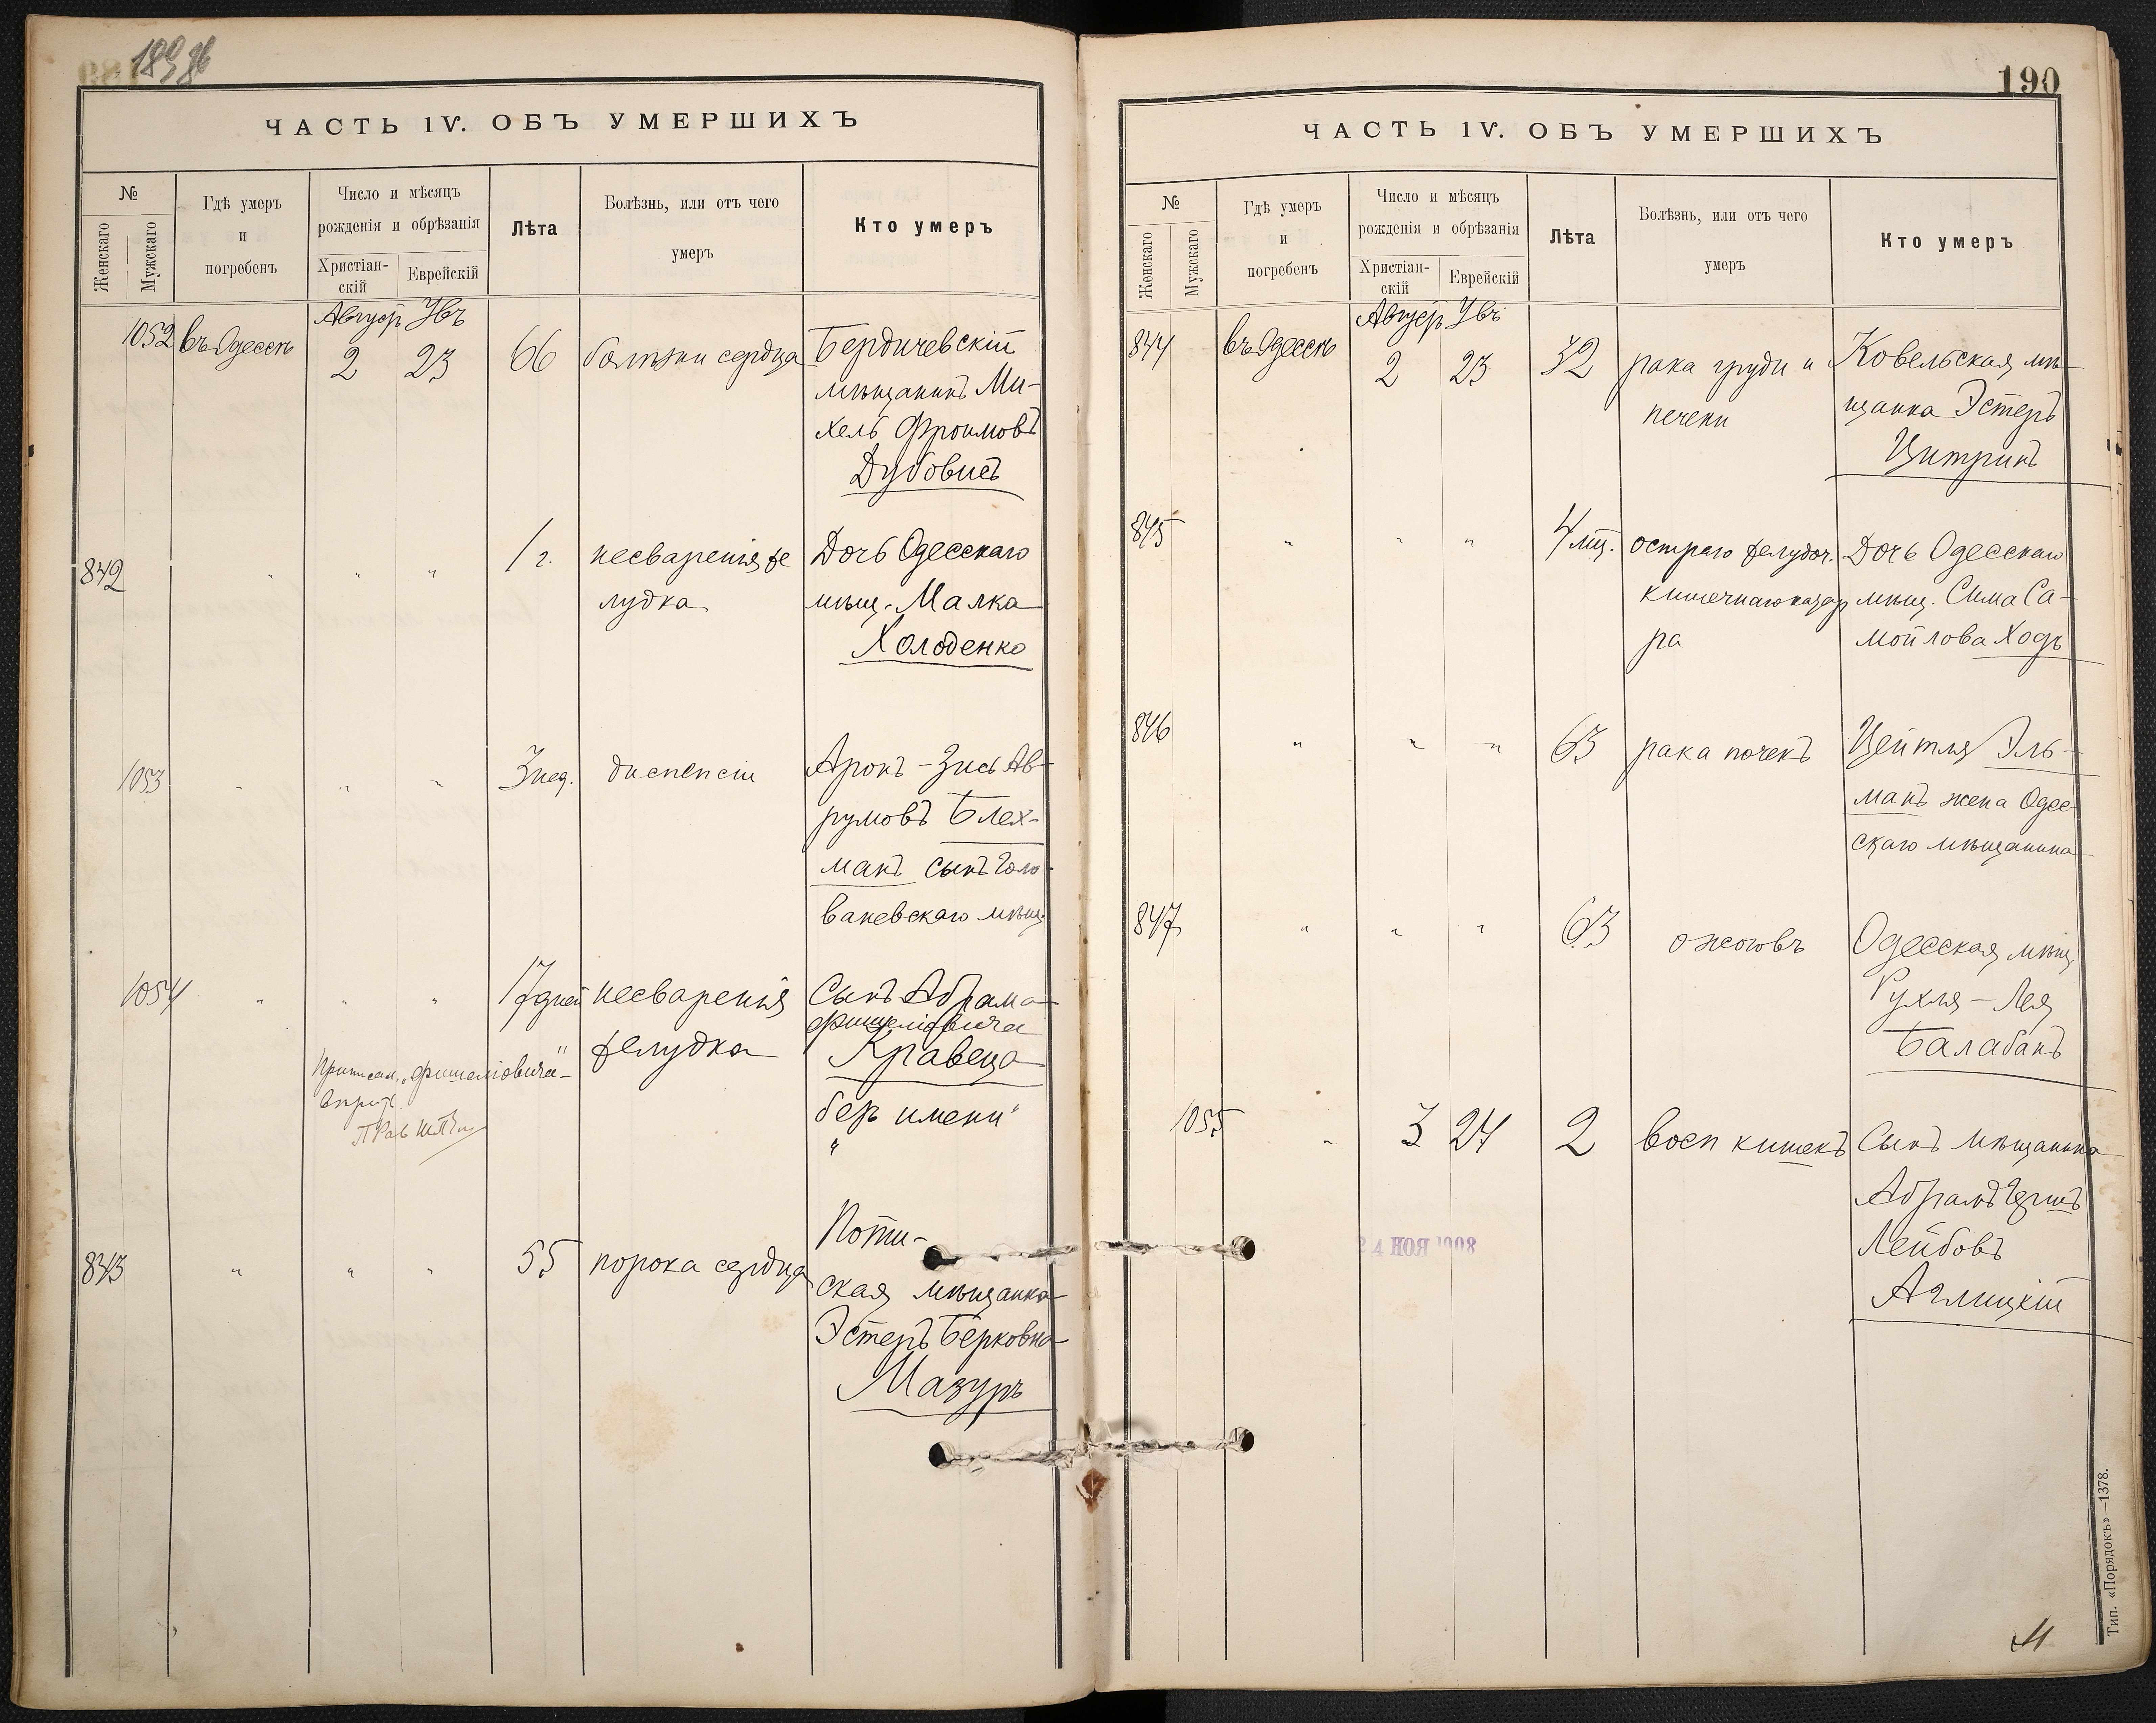 189 об
ЧАСТЬ IV. ОБЪ УМЕРШИХЪ
№
Женскаго
Мужскаго
Гдѣ умеръ
и
погребенъ
Число и мѣсяцъ
рожденія и обрѣзанія
Христіан-
скій
Еврейскій
Лѣта
Болѣзнь, или отъ чего
умеръ
Кто умеръ
Август Увъ
1052 въ Одессѣ 2 23 66 болѣзни сердца Бердичевскій
мѣщанинъ Ми-
хель Фроимовъ
Дубовисъ
842 " " " 1 г. несваренія же Дочь Одесскаго
лудка мѣщ. Малка
Холоденко
1053 " " " 3 нед. диспепсіи Аронъ-Зись Ав-
румовъ Блех-
манъ сынъ Голо-
ваневскаго мѣщ.
1054 " " " 17 дней несваренія Сынъ Абрама
Фишеліовича
желудка Кравеца
без имени
Приписан. „Фишеліовича"
843 " " " 55 порока сердца
ская мѣщанка
Эстеръ Берковна
Мазуръ
190
ЧАСТЬ IV. ОБЪ УМЕРШИХЪ
№
Женскаго
Мужскаго
Гдѣ умеръ
и
погребенъ
Число и мѣсяцъ
рожденія и обрѣзанія
Христіан-
скій
Еврейскій
Лѣта
Болѣзнь, или отъ чего
умеръ
Кто умеръ
Август Увъ
844 въ Одессѣ 2 23 32 рака груди и Ковельская мѣ-
печени щанка Эстеръ
Цитринъ
845 " " " 4 мц. остраго желудоч. Дочь Одесскаго
кишечнаго катар мѣщ. Сима Са-
ра мойлова Ходъ
846 " " " 63 рака почекъ Цейтля Эль-
манъ жена Одес
скаго мѣщанина
847 " " " 63 ожоговъ Одесская мѣщ.
Рухля-Лея
Балабанъ
1055 " 3 24 2 восп кишекъ Сынъ мѣщанина
Абрамъ Гершъ
Лейбовъ
Аглицкій
24 НОЯ 1908
Тип. «Порядокъ»—1378.